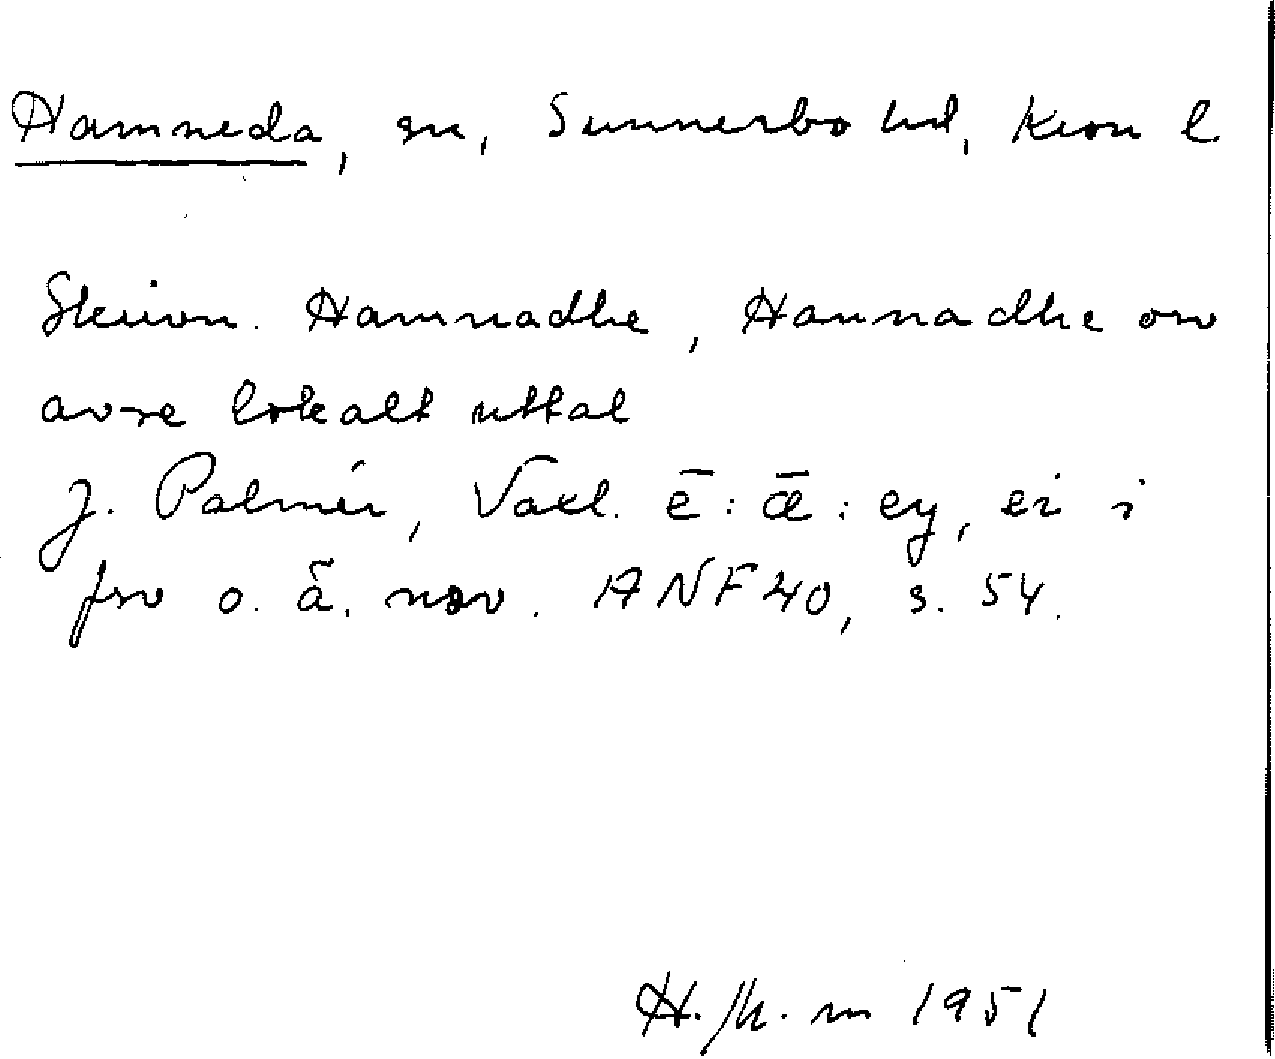 Hamneda, sn, Sunnerbo hd, Kron l
Skrivn. Hamnadhe, Hannadhe om
avse lokalt uttal
J. Palmér, Vaxl. ē : ǣ : ey, ei i
fsv o. ä. nsv. ANF 40, s. 54.
H. m 1951